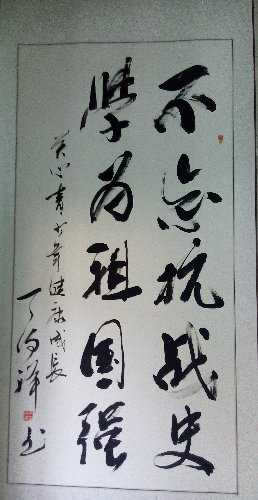 不忘抗战史
學为祖國强
关心青少年健康成長
丁 祥 书